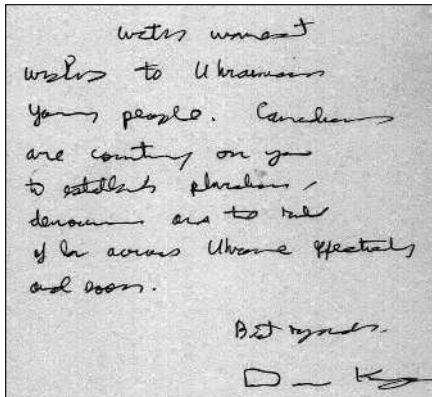 With warmest
wishes to Ukrainian
young people. Canadians
are counting on you
to establish pluralism,
democracy and the rule
of law across Ukraine effectively
and soon.
Best regards.
D K